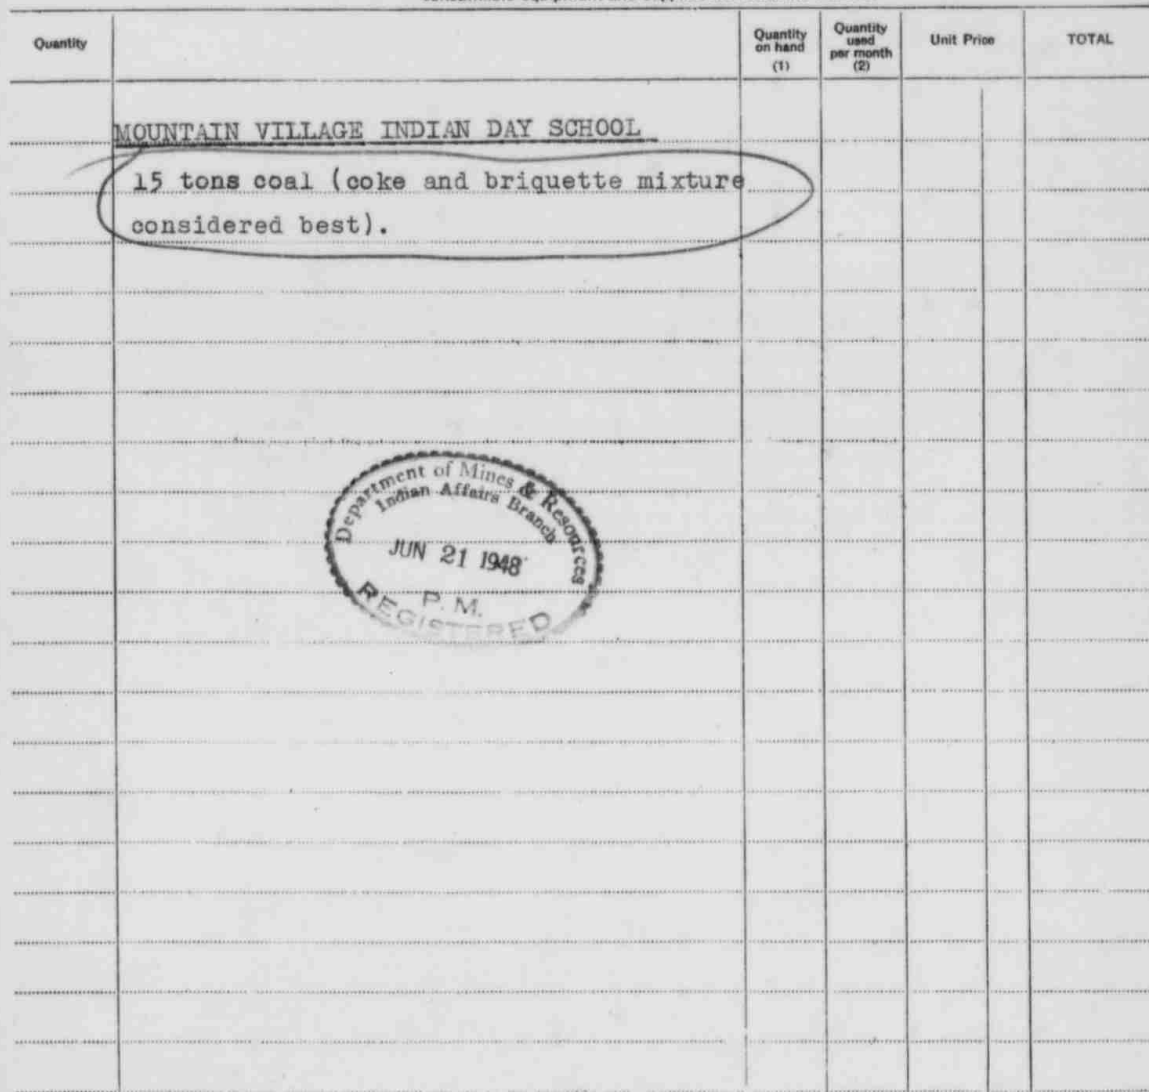 Quantity
Quantity on hand (1)
Quantity used per month (2)
Unit Price
TOTAL
MOUNTAIN VILLAGE INDIAN DAY SCHOOL
15 tons coal (coke and briquette mixture
considered best).
Department of Mines & Resources
Indian Affairs Branch
JUN 21 1948
P. M.
REGISTERED